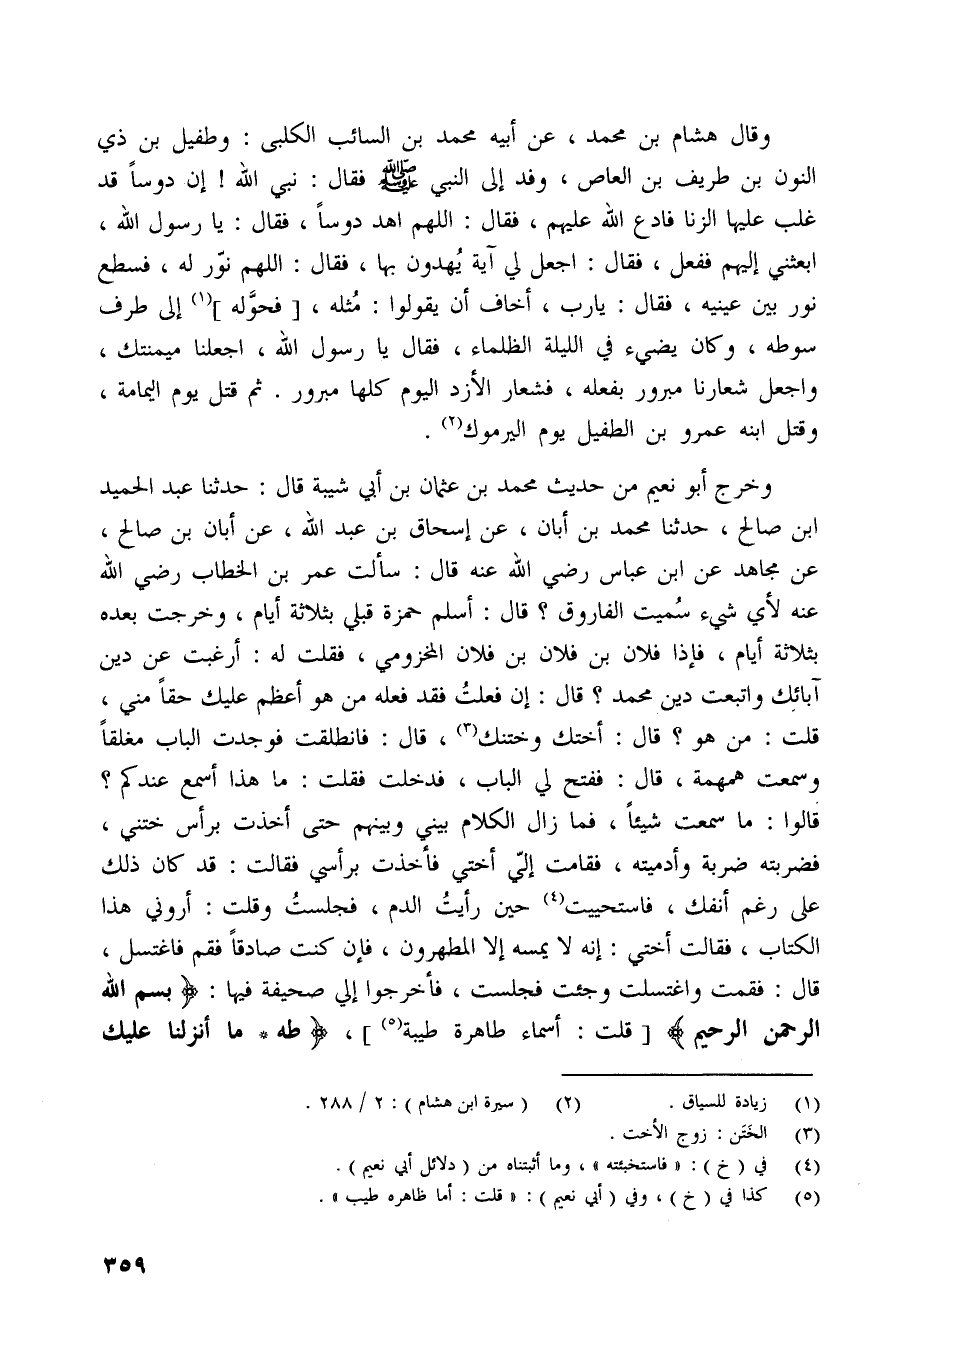 وقال هشام بن محمد ، عن أبيه محمد بن السائب الكلبى : وطفيل بن ذي
النون بن طريف بن العاص ، وفد إلى النبي ﷺ فقال : نبي الله ! إن دوساً قد
غلب عليها الزنا فادع الله عليهم ، فقال : اللهم اهد دوساً ، فقال : يا رسول الله ،
ابعثني إليهم ففعل ، فقال : اجعل لي آية يُهدون بها ، فقال : اللهم نوّر له ، فسطع
نور بين عينيه ، فقال : يارب ، أخاف أن يقولوا : مُثله ، [ فحوَّله ](١) إلى طرف
سوطه ، وكان يضيء في الليلة الظلماء ، فقال يا رسول الله ، اجعلنا ميمنتك ،
واجعل شعارنا مبرور بفعله ، فشعار الأزد اليوم كلها مبرور . ثم قتل يوم اليمامة ،
وقتل ابنه عمرو بن الطفيل يوم اليرموك(٢) .
وخرج أبو نعيم من حديث محمد بن عثمان بن أبي شيبة قال : حدثنا عبد الحميد
ابن صالح ، حدثنا محمد بن أبان ، عن إسحاق بن عبد الله ، عن أبان بن صالح ،
عن مجاهد عن ابن عباس رضي الله عنه قال : سألت عمر بن الخطاب رضي الله
عنه لأي شيء سُميت الفاروق ؟ قال : أسلم حمزة قبلي بثلاثة أيام ، وخرجت بعده
بثلاثة أيام ، فإذا فلان بن فلان بن فلان المخزومي ، فقلت له : أرغبت عن دين
آبائك واتبعت دين محمد ؟ قال : إن فعلتُ فقد فعله من هو أعظم عليك حقاً مني ،
قلت : من هو ؟ قال : أختك وختنك(٣) ، قال : فانطلقت فوجدت الباب مغلقاً
وسمعت همهمة ، قال : ففتح لي الباب ، فدخلت فقلت : ما هذا أسمع عندكم ؟
قالوا : ما سمعت شيئاً ، فما زال الكلام بيني وبينهم حتى أخذت برأس ختني ،
فضربته ضربة وأدميته ، فقامت إليّ أختي فأخذت برأسي فقالت : قد كان ذلك
على رغم أنفك ، فاستحييت(٤) حين رأيتُ الدم ، فجلستُ وقلت : أروني هذا
الكتاب ، فقالت أختي : إنه لا يمسه إلا المطهرون ، فإن كنت صادقاً فقم فاغتسل ،
قال : فقمت واغتسلت وجئت فجلست ، فأخرجوا إلي صحيفة فيها : ﴿ بسم الله
الرحمن الرحيم ﴾ [ قلت : أسماء طاهرة طيبة(٥) ] ، ﴿ طه * ما أنزلنا عليك
(١) زيادة للسياق . (٢) ( سيرة ابن هشام ) : ٢ / ٢٨٨ .
(٣) الخَتَن : زوج الأخت .
(٤) في ( خ ) : « فاستخبئته » ، وما أثبتناه من ( دلائل أبي نعيم ) .
(٥) كذا في ( خ ) ، وفي ( أبي نعيم ) : « قلت : أما ظاهره طيب » .
٣٥٩